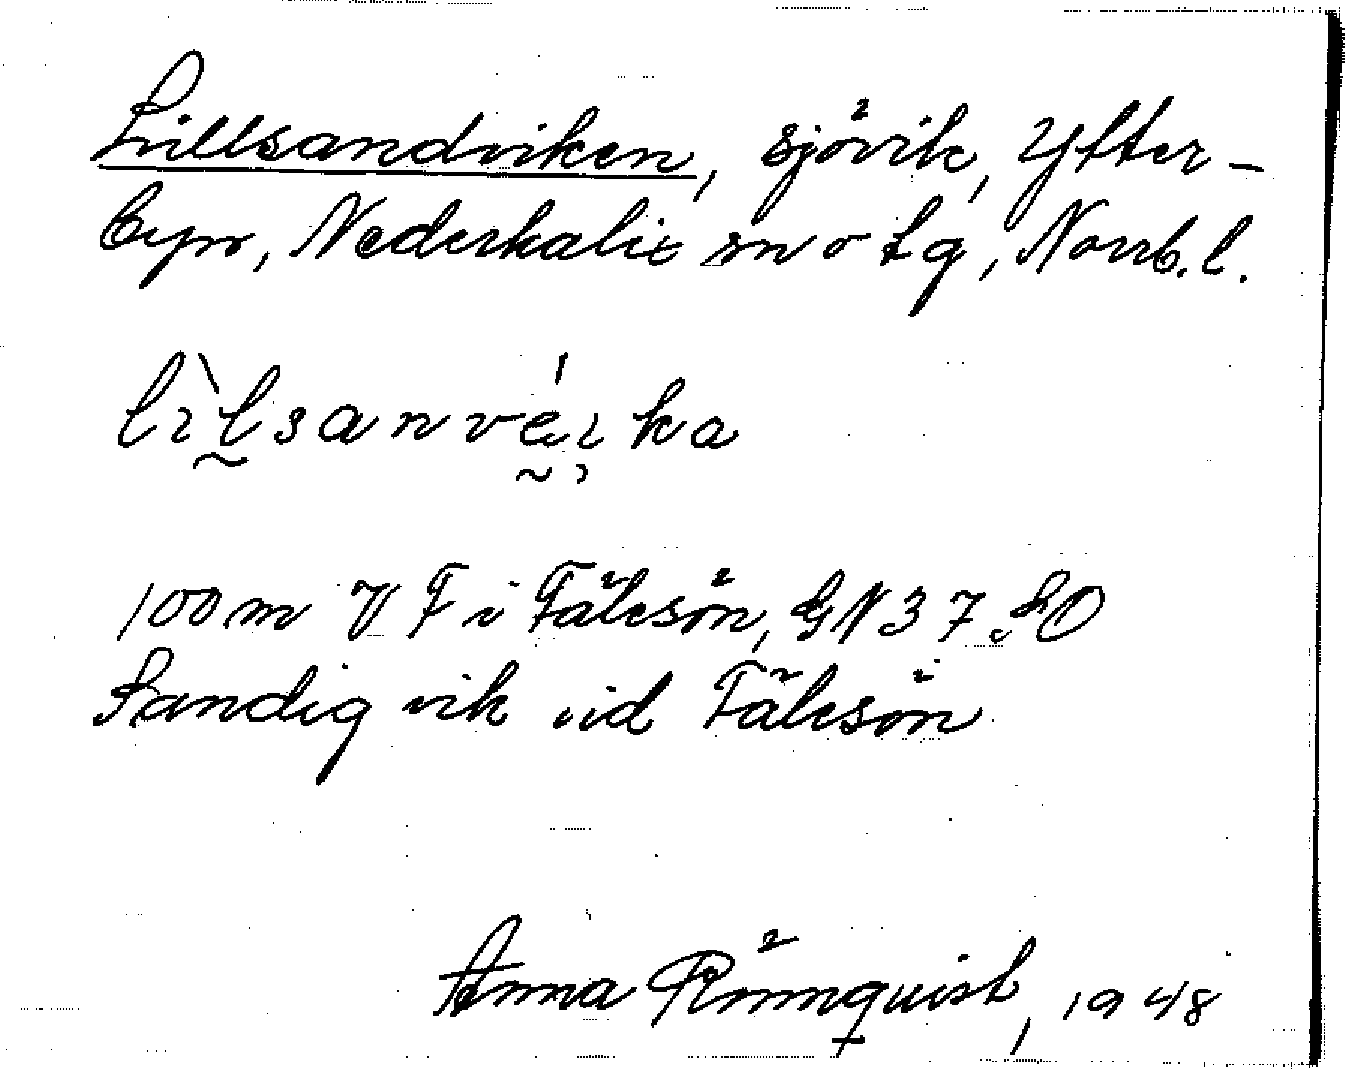 Lillsandviken, sjövik, Ytter-
byn, Nederkalix sn o tg, Norrb.l.
lìlsanvéıka
100 m V F i Fälcsön, GN 37 SO
Sandig vik vid Fälcsön
Anna Rönnquist, 1948